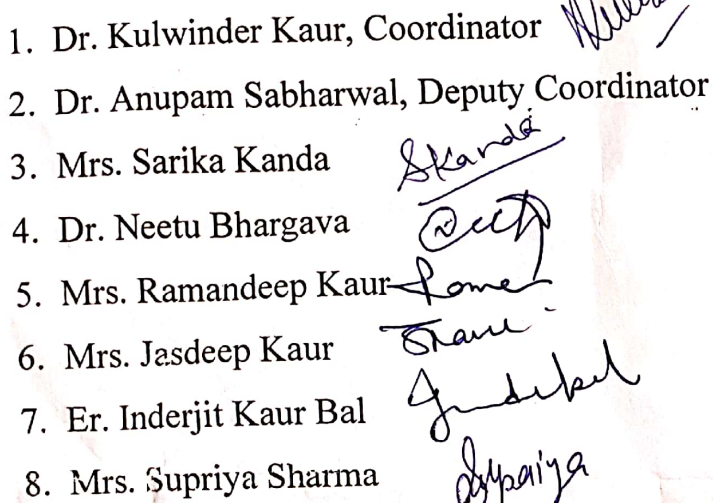 1. Dr. Kulwinder Kaur, Coordinator
2. Dr. Anupam Sabharwal, Deputy Coordinator
3. Mrs. Sarika Kanda SKanda
4. Dr. Neetu Bhargava
5. Mrs. Ramandeep Kaur
6. Mrs. Jasdeep Kaur
7. Er. Inderjit Kaur Bal
8. Mrs. Supriya Sharma